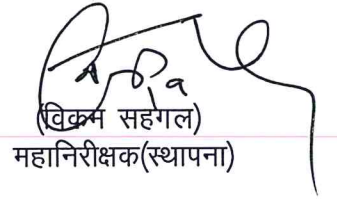 (विक्रम सहगल)
महानिरीक्षक(स्थापना)